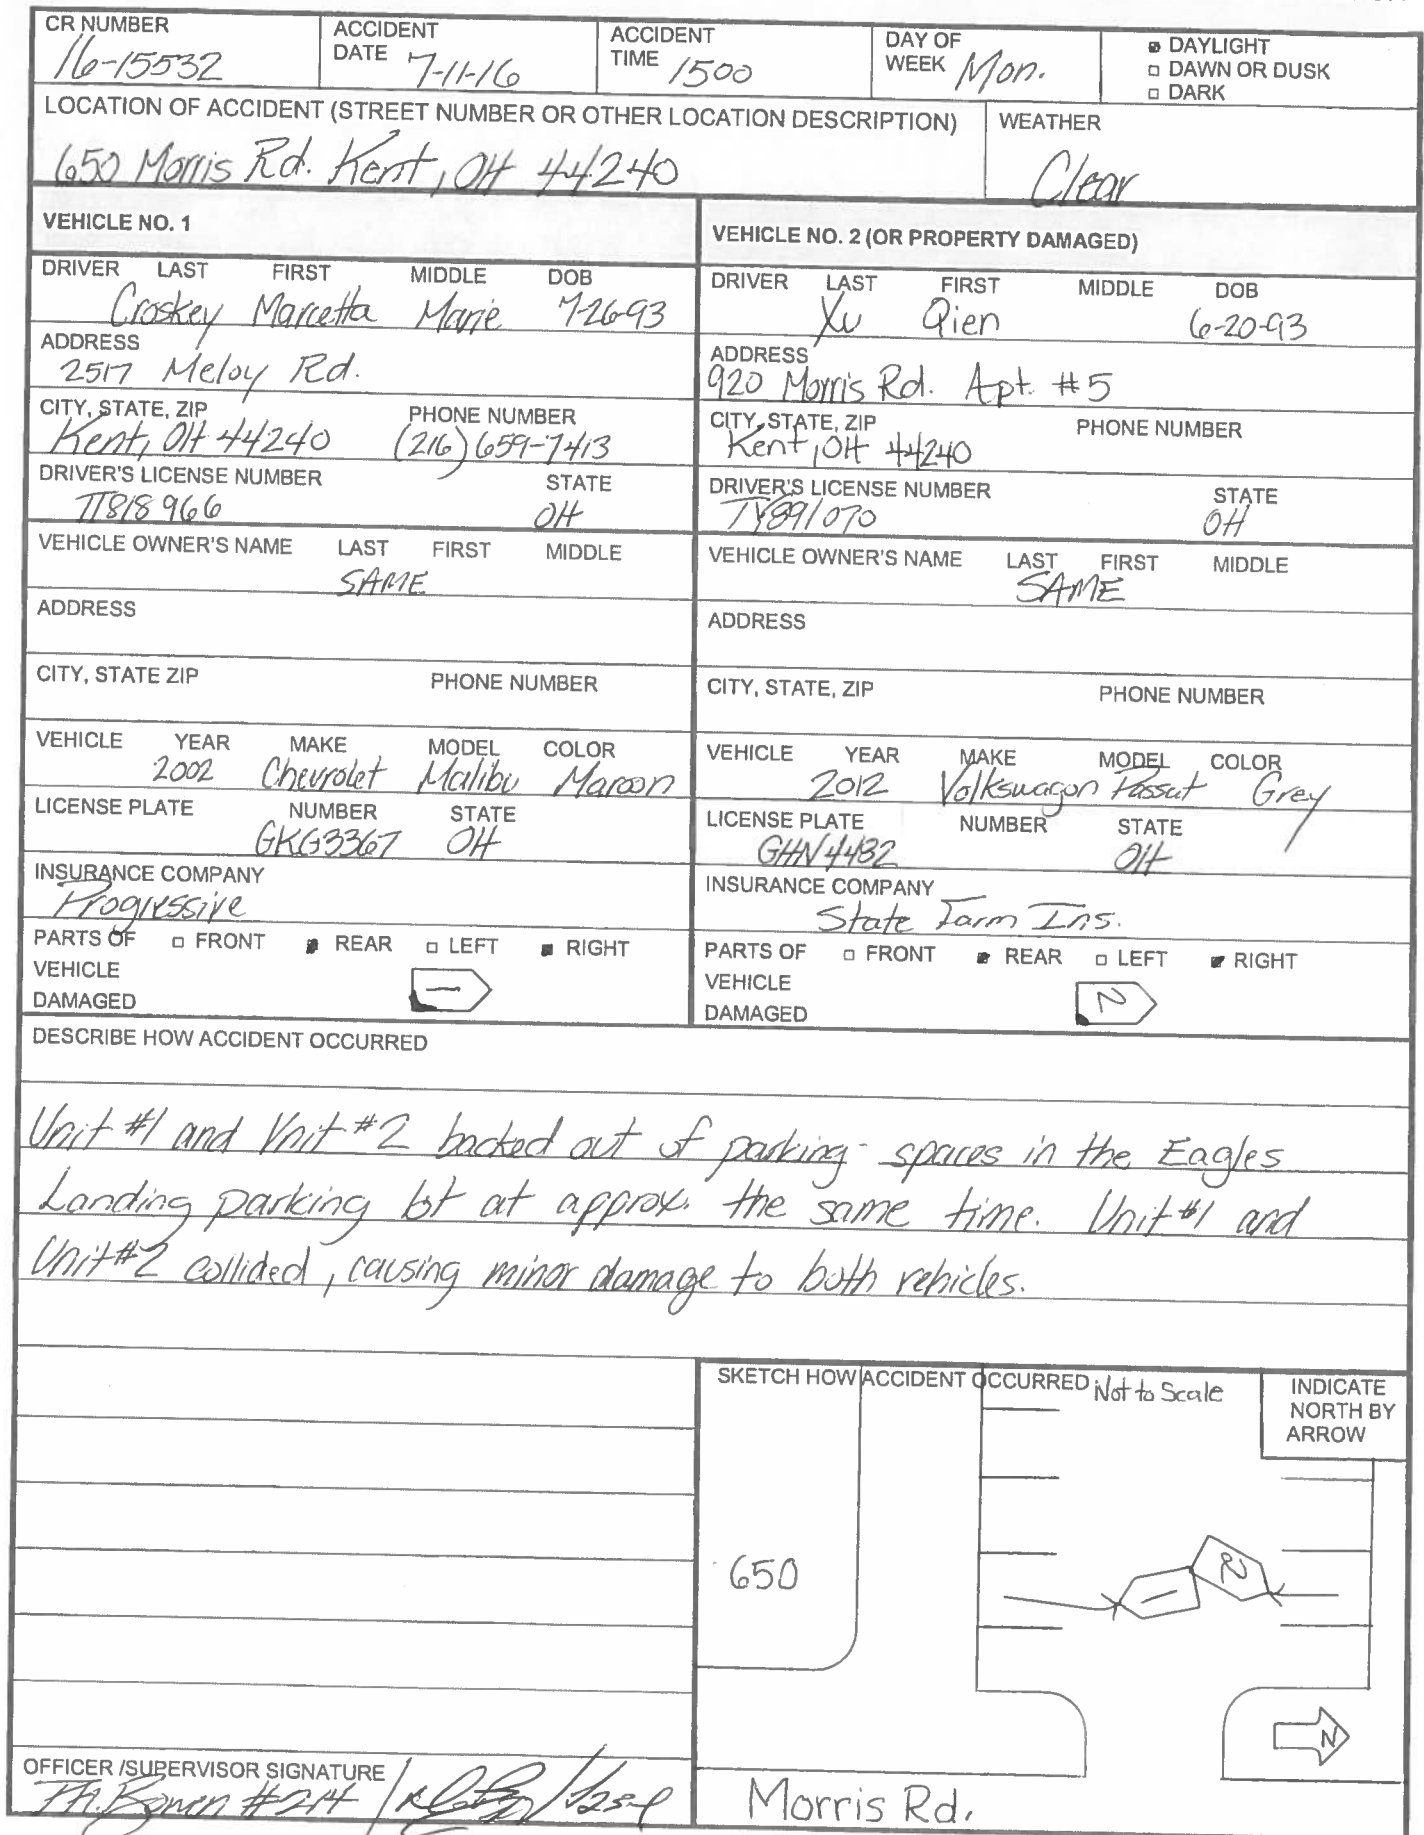 CR NUMBER 16-15532 ACCIDENT DATE 7-11-16 ACCIDENT TIME 1500 DAY OF WEEK Mon. DAYLIGHT
DAWN OR DUSK
DARK
LOCATION OF ACCIDENT (STREET NUMBER OR OTHER LOCATION DESCRIPTION) WEATHER
650 Morris Rd. Kent, OH 44240 Clear
VEHICLE NO. 1
DRIVER LAST FIRST MIDDLE DOB
Croskey Marcetta Marie 7-26-93
ADDRESS
2517 Meloy Rd.
CITY, STATE, ZIP PHONE NUMBER
Kent, OH 44240 (216) 659-7413
DRIVER'S LICENSE NUMBER STATE
TT818966 OH
VEHICLE OWNER'S NAME LAST FIRST MIDDLE
SAME
ADDRESS
CITY, STATE ZIP PHONE NUMBER
VEHICLE YEAR MAKE MODEL COLOR
2002 Chevrolet Malibu Maroon
LICENSE PLATE NUMBER STATE
GKG3367 OH
INSURANCE COMPANY
Progressive
PARTS OF VEHICLE DAMAGED FRONT REAR LEFT RIGHT
1
VEHICLE NO. 2 (OR PROPERTY DAMAGED)
DRIVER LAST FIRST MIDDLE DOB
Xu Qien 6-20-93
ADDRESS
920 Morris Rd. Apt. #5
CITY, STATE, ZIP PHONE NUMBER
Kent, OH 44240
DRIVER'S LICENSE NUMBER STATE
TY891070 OH
VEHICLE OWNER'S NAME LAST FIRST MIDDLE
SAME
ADDRESS
CITY, STATE, ZIP PHONE NUMBER
VEHICLE YEAR MAKE MODEL COLOR
2012 Volkswagon Passat Grey
LICENSE PLATE NUMBER STATE
GHN4482 OH
INSURANCE COMPANY
State Farm Ins.
PARTS OF VEHICLE DAMAGED FRONT REAR LEFT RIGHT
2
DESCRIBE HOW ACCIDENT OCCURRED
Unit #1 and Unit #2 backed out of parking spaces in the Eagles
Landing parking lot at approx. the same time. Unit #1 and
Unit #2 collided, causing minor damage to both vehicles.
SKETCH HOW ACCIDENT OCCURRED Not to Scale
INDICATE
NORTH BY
ARROW
650
1
2
N
Morris Rd.
OFFICER /SUPERVISOR SIGNATURE
Bowen #214